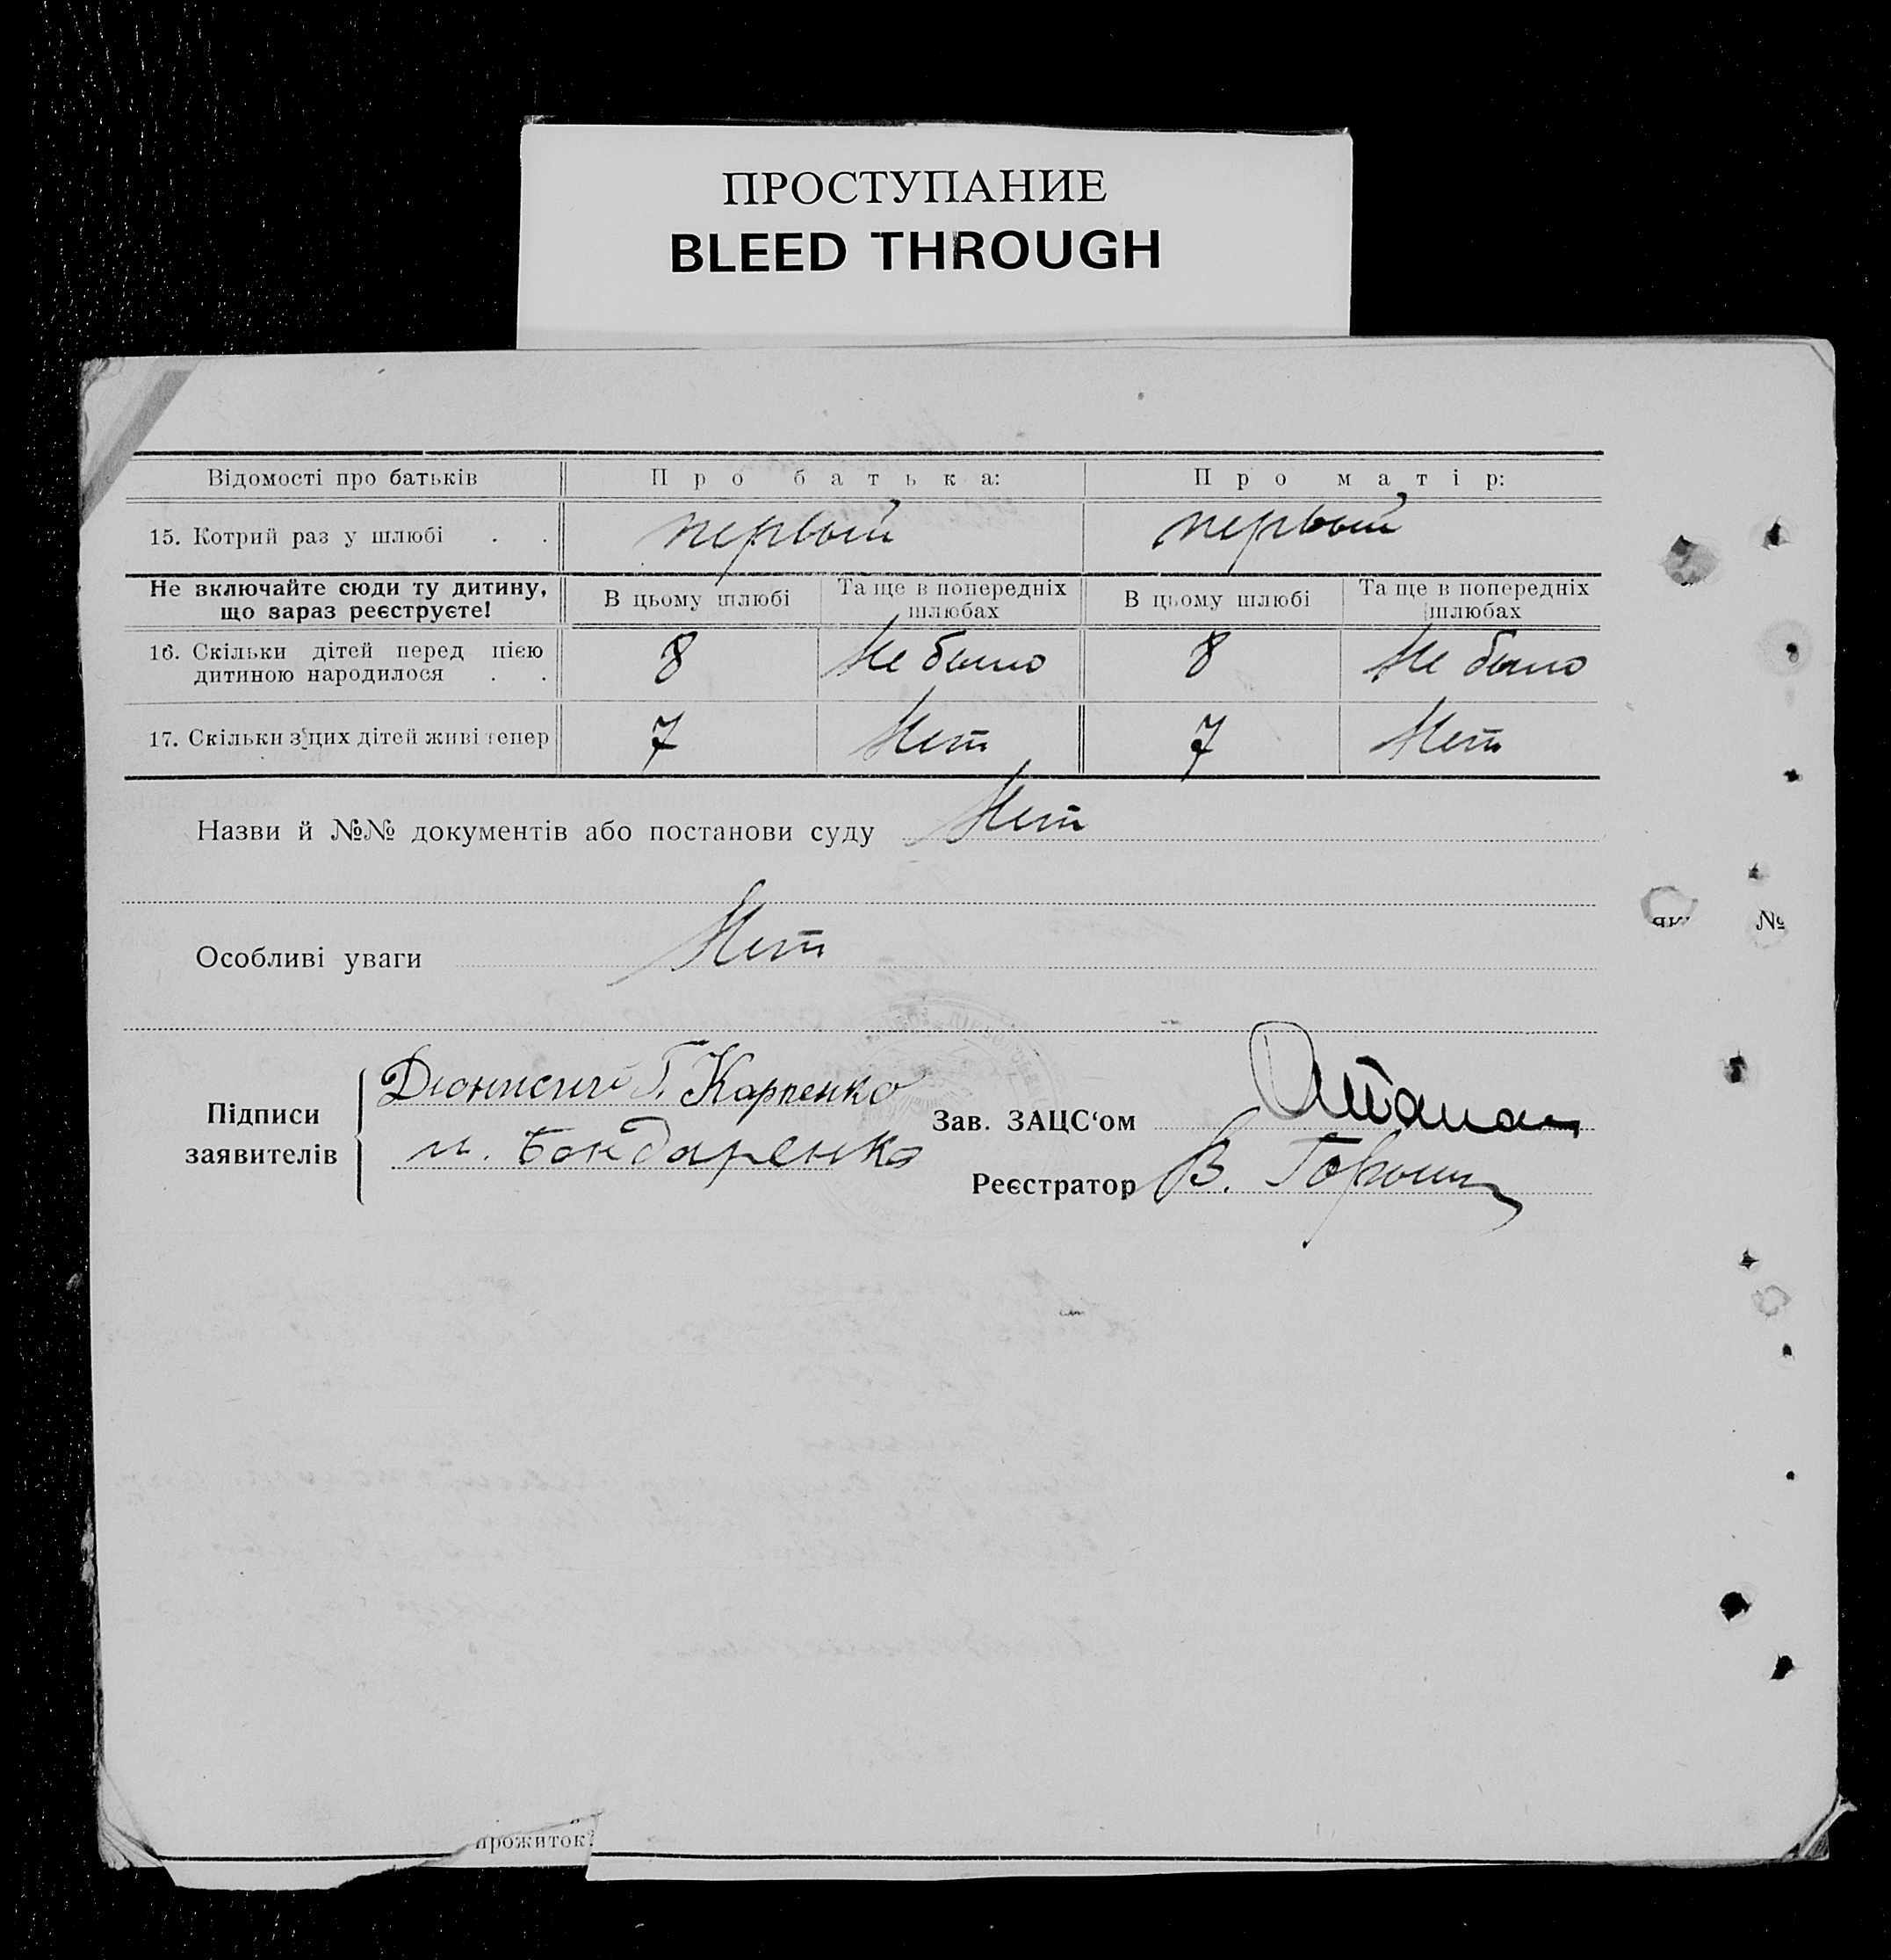 ПРОСТУПАНИЕ
BLEED THROUGH
Відомості про батьків Про батька: Про матір:
15. Котрий раз у шлюбі . . первый первый
Не включайте сюди ту дитину, що зараз реєструєте! В цьому шлюбі Та ще в попередніх шлюбах В цьому шлюбі Та ще в попередніх шлюбах
16. Скільки дітей перед цією дитиною народилося . . 8 Не было 8 Не было
17. Скільки з цих дітей живі тепер 7 Нет 7 Нет
Назви й №№ документів або постанови суду Нет
Особливі уваги Нет
Підписи заявителів
Дионисий Г. Карпенко
м. Бондаренко
Зав. ЗАЦС‘ом
Реєстратор В.
№
прожиток?